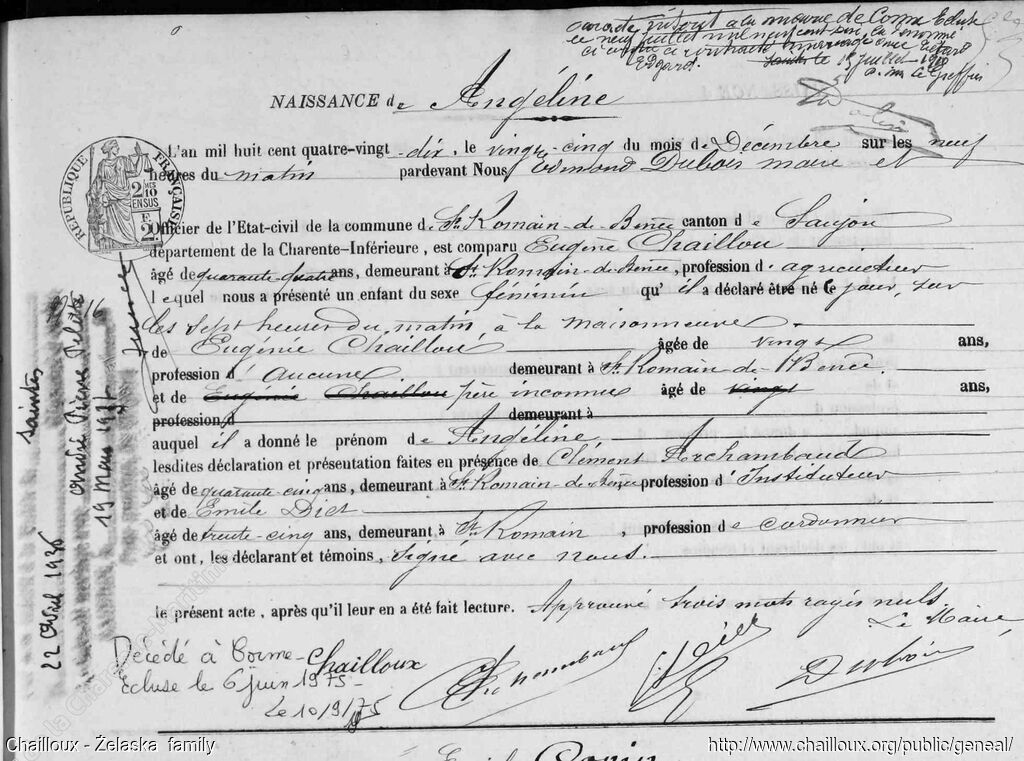 à la mairie de Corme Ecluse
le neuf juillet mil neuf cent
a contracté mariage avec
Edgard. le 15 juillet 1910
NAISSANCE de Angéline
L'an mil huit cent quatre-vingt-dix, le vingt-cinq du mois de Décembre sur les neuf
heures du matin pardevant Nous Edmond Dubois maire et
RÉPUBLIQUE FRANÇAISE
2 MES 10 EN SUS
2 F.
Officier de l'Etat-civil de la commune de St Romain-de-Benêt canton de Saujon
département de la Charente-Inférieure, est comparu Eugène Chaillou
âgé de quarante-quatre ans, demeurant à St Romain-de-Benêt, profession d'agriculteur
lequel nous a présenté un enfant du sexe féminin qu'il a déclaré être né Ce jour, sur
les sept heures du matin, à la maisonneuve
de Eugénie Chaillou âgée de vingt ans,
profession d'Aucune demeurant à St Romain-de-Benêt.
et de Eugénie Chaillou père inconnu âgé de vingt ans,
profession d demeurant à
auquel il a donné le prénom de Angéline,
lesdites déclaration et présentation faites en présence de Clément Archambaud
âgé de quarante-cinq ans, demeurant à St Romain-de-Benêt profession d'Instituteur
et de Emile Diet
âgé de trente-cinq ans, demeurant à St Romain, profession de cordonnier
et ont, les déclarant et témoins, signé avec nous.
le présent acte, après qu'il leur en a été fait lecture. Approuvé trois mots rayés nuls
Le Maire,
Chailloux Archambaud Diet Dubois
Décédé à Corme-
Ecluse le 6 juin 1975-
Le 10/9/75
Saintes
André Pierre
19 Mars 1921
22 Avril 1936
Chailloux - Želaska family
http://www.chailloux.org/public/geneal/